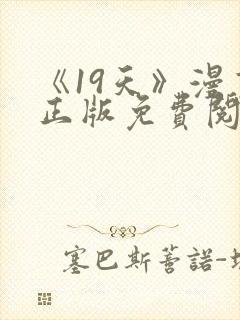 《19天》漫
正版免费閱
塞巴斯蒂諾-